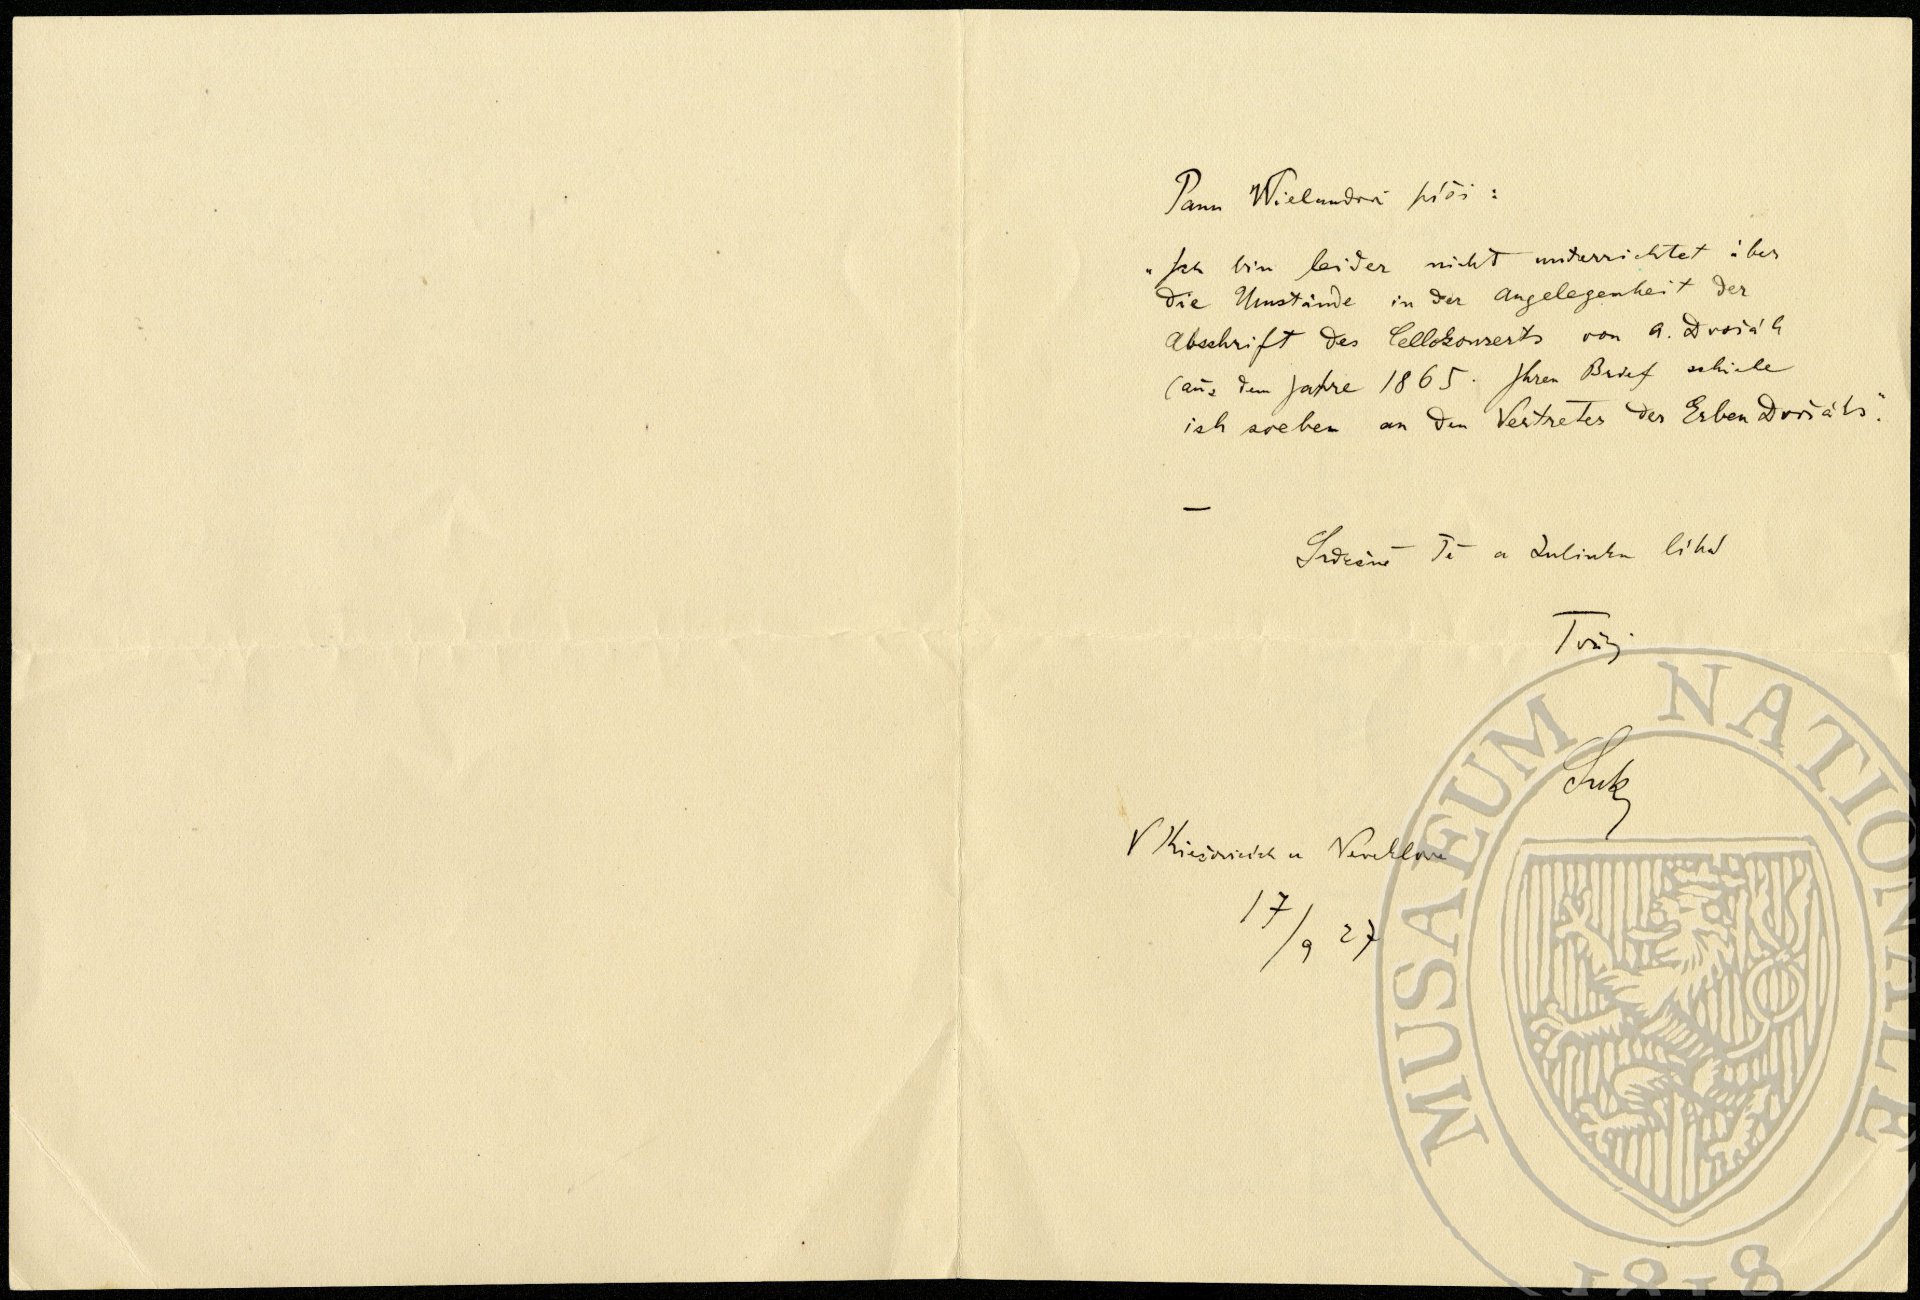 Panu Wielandovi píši:
"Ich bin leider nicht unterrichtet über
die Umstände in der Angelegenheit der
Abschrift des Cellokonzerts von A. Dvořák
(aus dem Jahre 1865. Ihren Brief schicke
ich soeben an den Vertreter der Erben Dvořáks".
—
Srdečně Tě a Zulinku líbá
Tvůj
Suk
V Křečovicích u Neveklova
17/9 27
MUSAEUM NATIONALE
1818